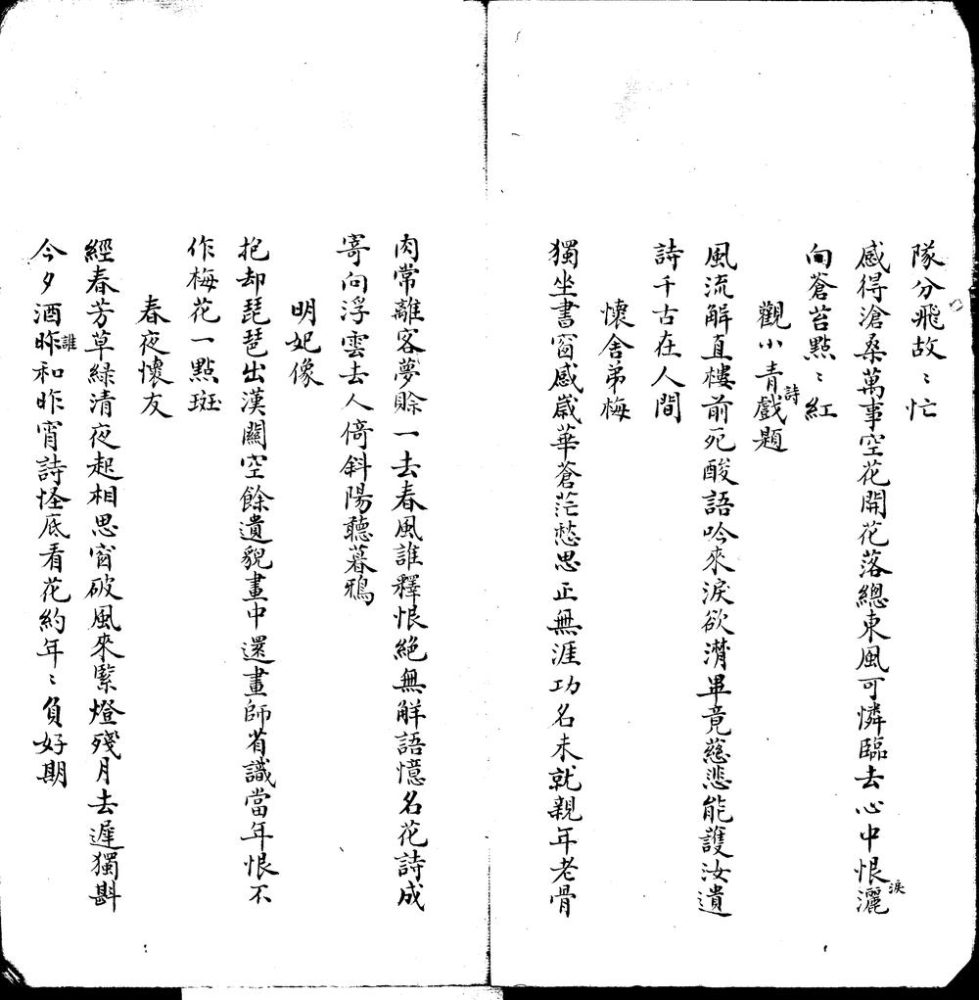 隊分飛故〻忙
感得滄桑萬事空花開花落總東風可憐臨去心中恨灑淚
向蒼苔點〻紅
觀小青詩戲題
風流解直樓前死酸語吟來淚欲潸畢竟慈悲能護汝遺
詩千古在人間
懷舍弟梅
獨坐書窗感歲華蒼茫愁思正無涯功名未就親年老骨
肉常離客夢賒一去春風誰釋恨絕無解語憶名花詩成
寄向浮雲去人倚斜陽聽暮鴉
明妃像
抱却琵琶出漢關空餘遺貌畫中還畫師省識當年恨不
作梅花一點斑
春夜懷友
經春芳草綠清夜起相思窗破風來緊燈殘月去遲獨斟
今夕酒昨誰和昨宵詩怪底看花約年〻負好期